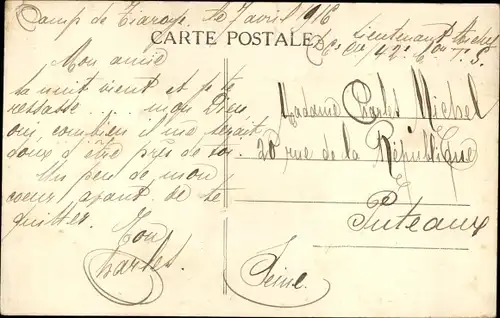 Camp de Tiaroye le 7 avril 1916
Lieutenant Michel
42e Bon T. S.
CARTE POSTALE
Mon amie
La nuit vient et je te
ressasse .... mon Dieu
oui, combien il me serait
doux d'être près de toi.
Un peu de mon
coeur avant de te
quitter.
Ton
Charles.
Madame Charles Michel
20 rue de la République
Puteaux
Seine.